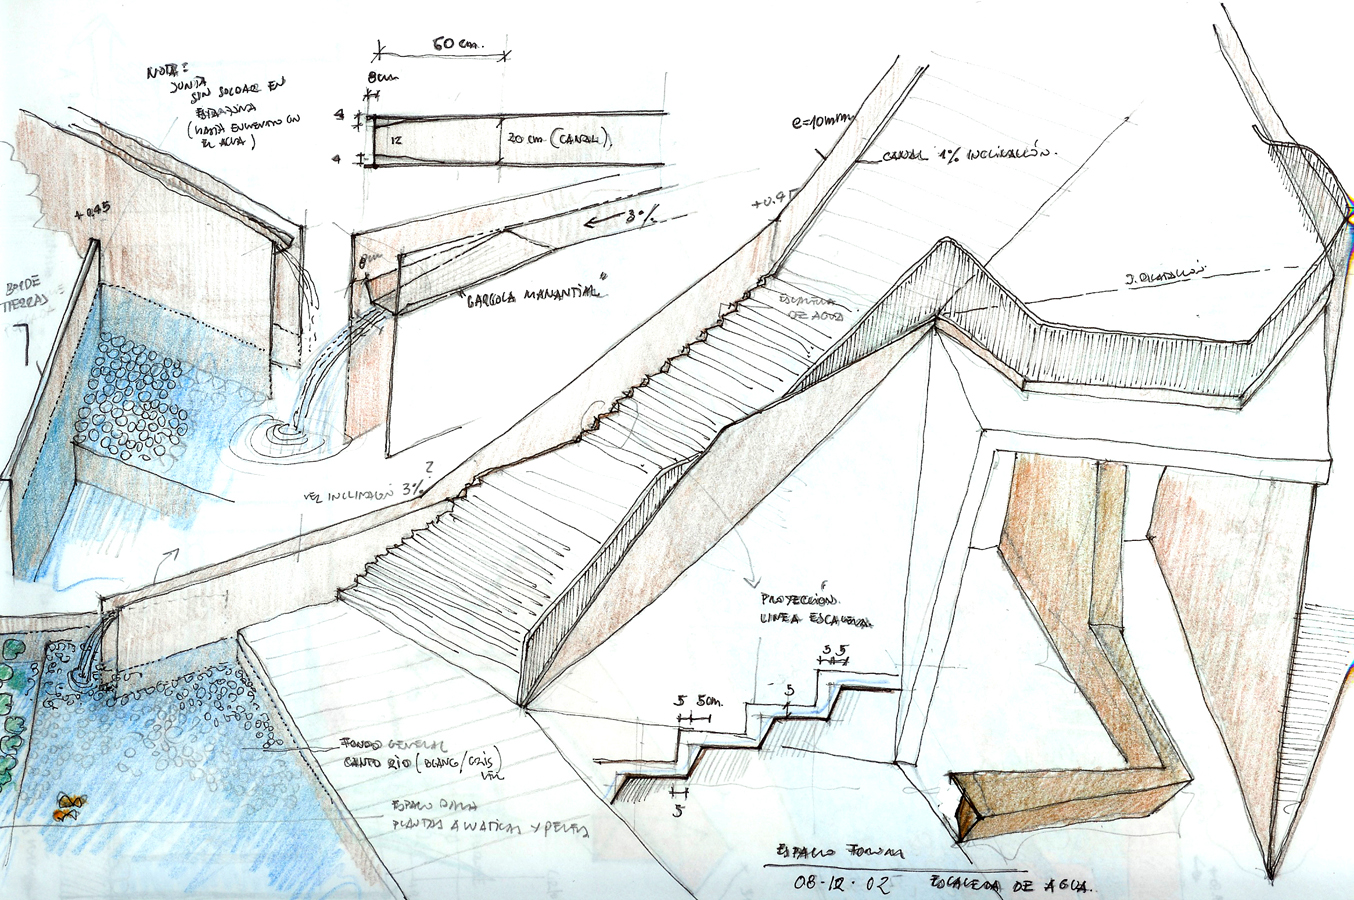 NOTA:
JUNTA
SIN SOLDAR EN
ESQUINA
(HASTA ENCUENTRO CON
EL AGUA)
60 cm.
8cm
4
12
20 cm (CANAL)
4
e=10mm
CANAL 1% INCLINACIÓN.
+0.45
+0.45
3%
8cm
"GARGOLA MANANTIAL"
BORDE
TIERRAS
J. DILATACIÓN
ESCALERA
DE AGUA
?
VER INCLINACIÓN 3%
PROYECCIÓN
LINEA ESCALERA
5 5
5 5cm.
5
5
FONDO GENERAL
CANTO RIO (BLANCO/GRIS)
VER
ESPACIO PARA
PLANTAS ACUATICAS Y PECES
ESPACIO
08-12-02 ESCALERA DE AGUA.